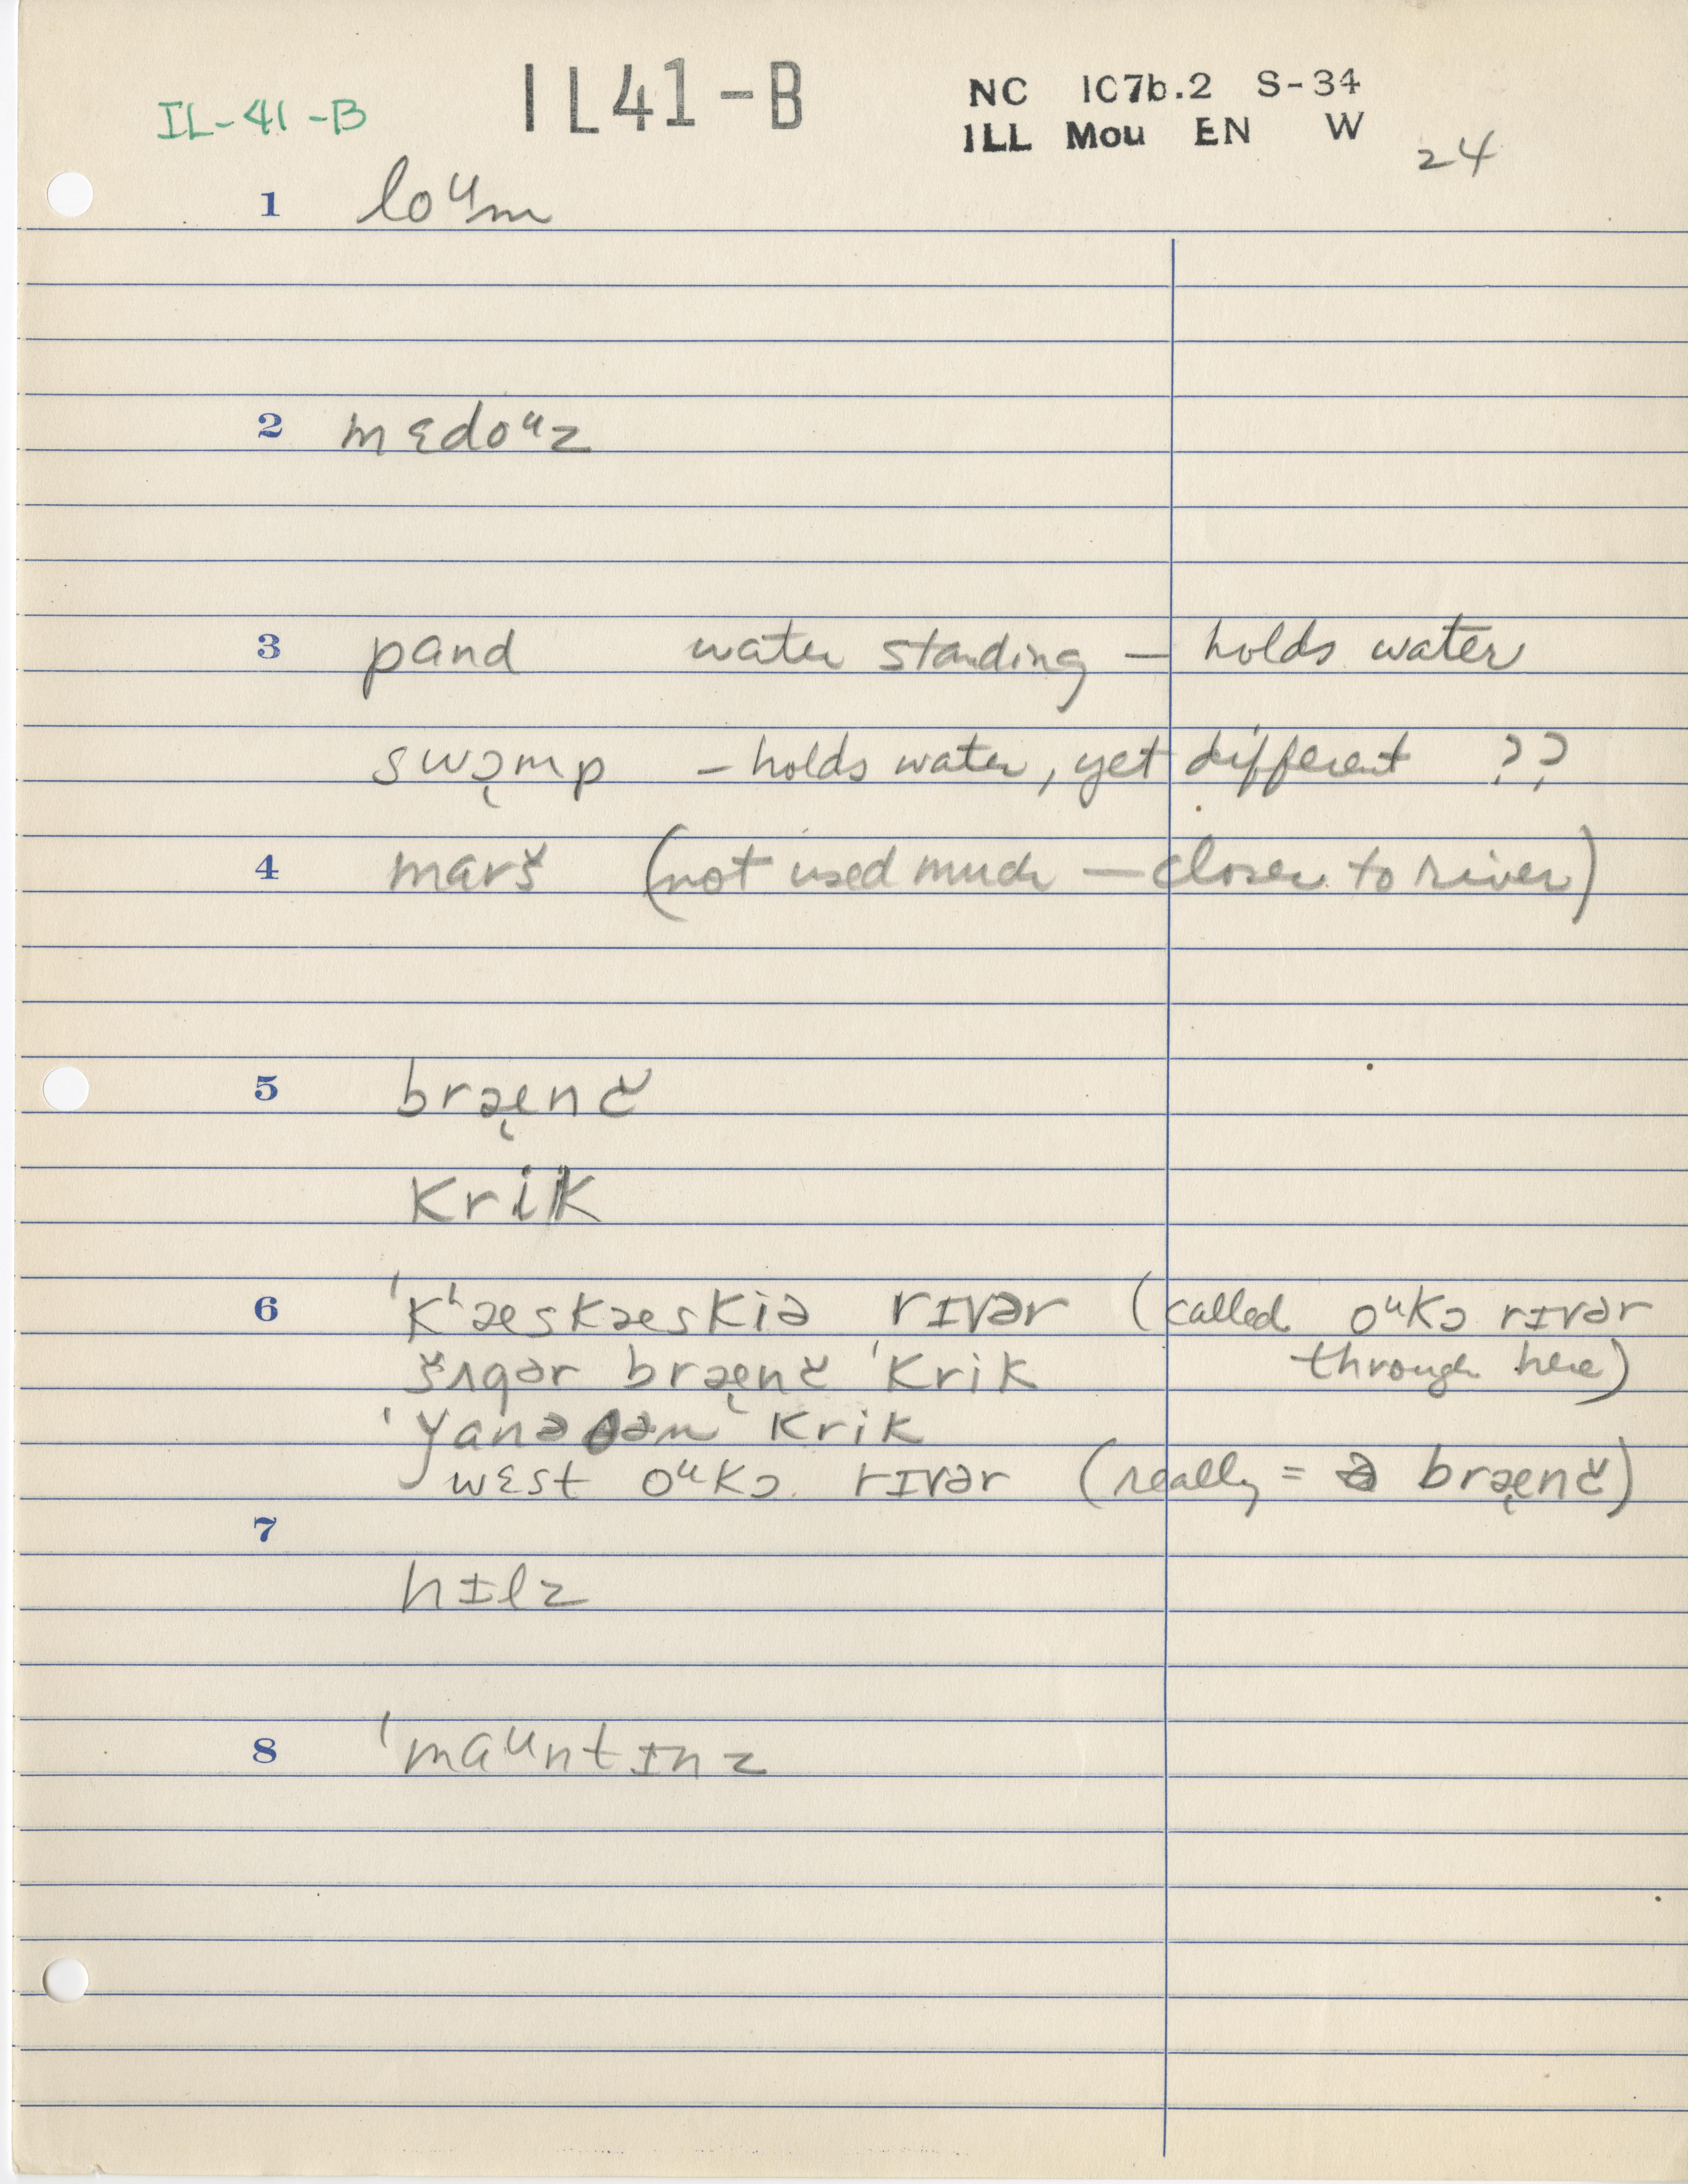 IL-41-B IL41-B NC 1C7b.2 S-34
ILL Mou EN W 24
1 loᵘm
2 mɛdoᵘz
3 pand water standing — holds water
swɔ̨mp – holds water, yet different ??
4 marš (not used much — closer to river)
5 bræ̨nč
Krik
6 ˈKʰæskæskiə rɪvər (called oᵘkɔ rɪvər
šʌgər bræ̨nč ˈKrik through here)
Krik
wɛst oᵘkɔ rɪvər (really = a bræ̨nč)
7
hɪlz
8 ˈmaᵘntɪnz